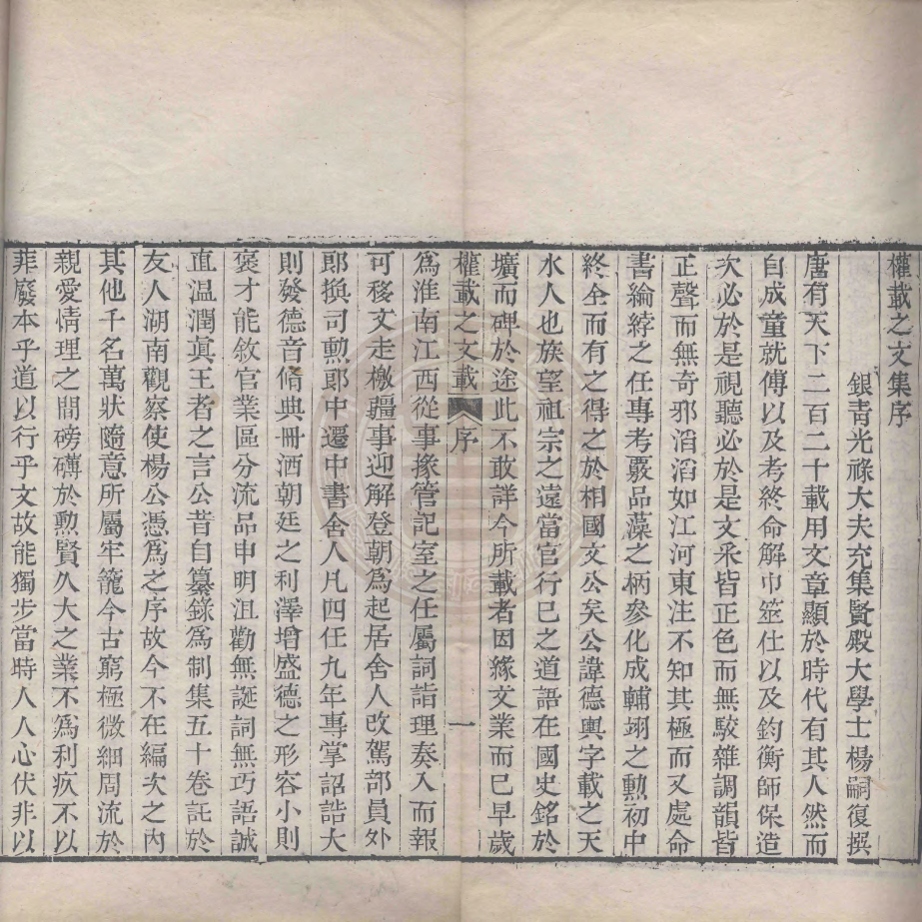 權載之文集序
銀青光祿大夫充集賢殿大學士楊嗣復撰
唐有天下二百二十載用文章顯於時代有其人然而
自成童就傅以及考終命解巾筮仕以及鈞衡師保造
次必於是視聽必於是文采皆正色而無駮雜調韻皆
正聲而無奇邪滔滔如江河東注不知其極而又處命
書綸綍之任專考覈品藻之柄參化成輔翊之勲初中
終全而有之得之於相國文公矣公諱德輿字載之天
水人也族望祖宗之遠當官行已之道語在國史銘於
壙而碑於途此不敢詳今所載者因緣文業而已早歲
權載之文載 序 一
爲淮南江西從事掾管記室之任屬詞詣理奏入而報
可移文走檄疆事迎解登朝爲起居舍人改駕部員外
郎換司勲郎中遷中書舍人凡四任九年專掌詔誥大
則發德音脩典冊洒朝廷之利澤增盛德之形容小則
褒才能敘官業區分流品申明沮勸無誕詞無巧語誠
直温潤眞王者之言公昔自纂錄爲制集五十卷託於
友人湖南觀察使楊公憑爲之序故今不在編次之內
其他千名萬狀隨意所屬牢籠今古窮極微細周流於
親愛情理之間磅礴於勲賢久大之業不爲利疚不以
菲廢本乎道以行乎文故能獨步當時人人心伏非以